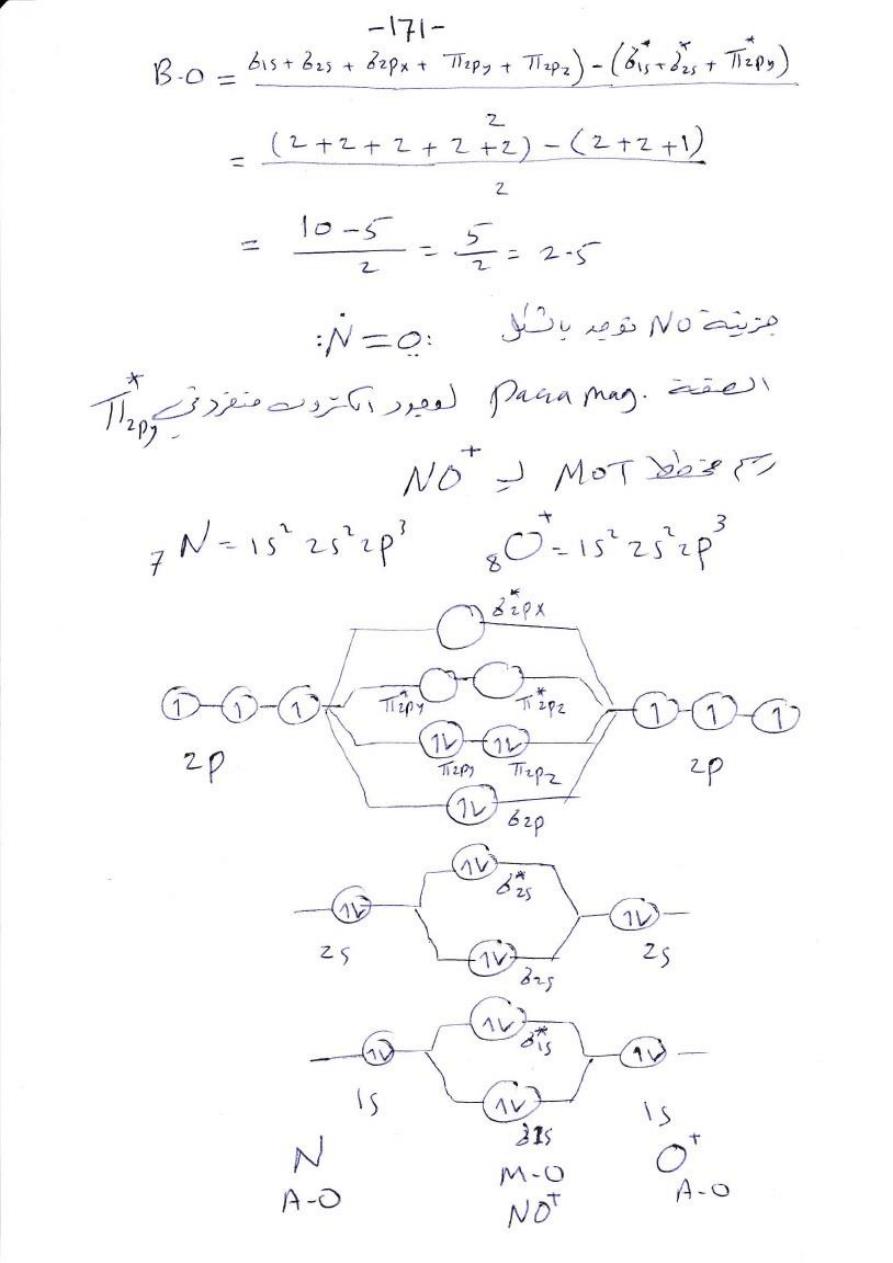 -171-
B.O = σ1s + σ2s + σ2px + π2py + π2pz) - (σ*1s + σ*2s + π*2py)
2
= (2+2+2+2+2) - (2+2+1)
2
= 10-5 / 2 = 5/2 = 2.5
جزيئة NO توجد بالشكل :Ṅ=O:
الصفة Para mag. لوجود الكترون منفرد في π*2py
رسم مخطط MOT لـ NO+
7N = 1s² 2s² 2p³ 8O+ = 1s² 2s² 2p³
σ*2px
π*2py π*2pz
2p π2py π2pz 2p
σ2p
σ*2s
2s 2s
σ2s
σ*1s
1s 1s
σ1s
N M-O O+
A-O NO+ A-O